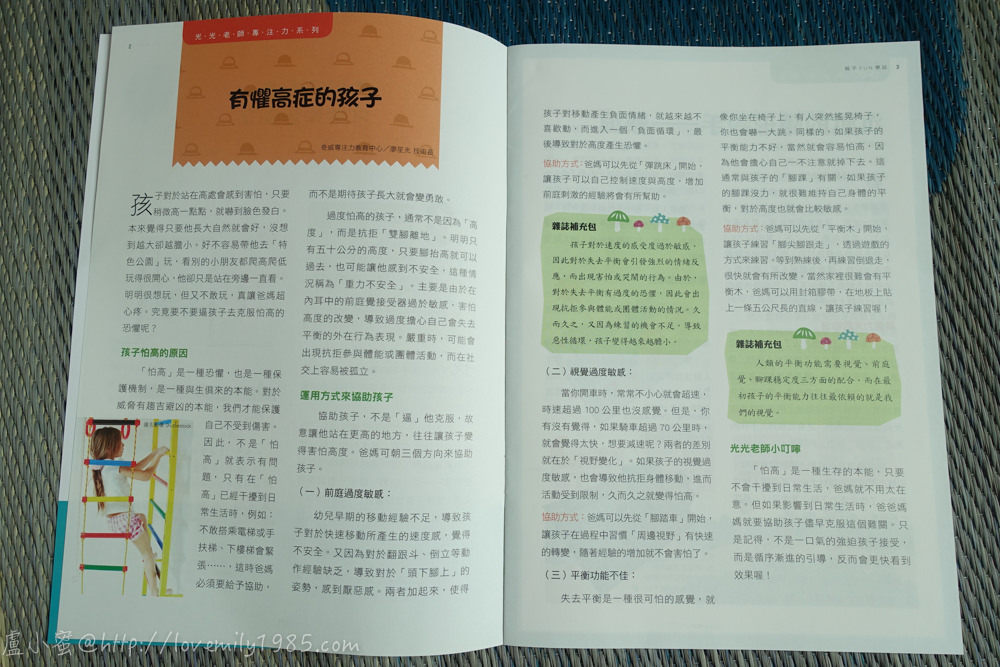 2
光‧光‧老‧師‧專‧注‧力‧系‧列
有懼高症的孩子
奇威專注力教育中心／廖笙光 技術長
孩子對於站在高處會感到害怕，只要
稍微高一點點，就嚇到臉色發白。
本來覺得只要他長大自然就會好，沒想
到越大卻越膽小，好不容易帶他去「特
色公園」玩，看別的小朋友都爬高爬低
玩得很開心，他卻只是站在旁邊一直看。
明明很想玩，但又不敢玩，真讓爸媽超
心疼。究竟要不要逼孩子去克服怕高的
恐懼呢？
孩子怕高的原因
「怕高」是一種恐懼，也是一種保
護機制，是一種與生俱來的本能。對於
威脅有趨吉避凶的本能，我們才能保護
自己不受到傷害。
因此，不是「怕
高」就表示有問
題，只有在「怕
高」已經干擾到日
常生活時，例如：
不敢搭乘電梯或手
扶梯、下樓梯會緊
張……，這時爸媽
必須要給予協助，
而不是期待孩子長大就會變勇敢。
過度怕高的孩子，通常不是因為「高
度」，而是抗拒「雙腳離地」。明明只
有五十公分的高度，只要腳抬高就可以
過去，也可能讓他感到不安全，這種情
況稱為「重力不安全」。主要是由於在
內耳中的前庭覺接受器過於敏感，害怕
高度的改變，導致過度擔心自己會失去
平衡的外在行為表現。嚴重時，可能會
出現抗拒參與體能或團體活動，而在社
交上容易被孤立。
運用方式來協助孩子
協助孩子，不是「逼」他克服，故
意讓他站在更高的地方，往往讓孩子變
得害怕高度。爸媽可朝三個方向來協助
孩子。
（一）前庭過度敏感：
幼兒早期的移動經驗不足，導致孩
子對於快速移動所產生的速度感，覺得
不安全。又因為對於翻跟斗、倒立等動
作經驗缺乏，導致對於「頭下腳上」的
姿勢，感到厭惡感。兩者加起來，使得
親子FUN學誌 3
孩子對移動產生負面情緒，就越來越不
喜歡動，而進入一個「負面循環」，最
後導致對於高度產生恐懼。
協助方式：爸媽可以先從「彈跳床」開始，
讓孩子可以自己控制速度與高度，增加
前庭刺激的經驗將會有所幫助。
雜誌補充包
孩子對於速度的感受度過於敏感，
因此對於失去平衡會引發強烈的情緒反
應，而出現害怕或哭鬧的行為。由於，
對於失去平衡有過度的恐懼，因此會出
現抗拒參與體能或團體活動的情況。久
而久之，又因為練習的機會不足，導致
惡性循環，孩子變得越來越膽小。
（二）視覺過度敏感：
當你開車時，常常不小心就會超速，
時速超過 100 公里也沒感覺。但是，你
有沒有覺得，如果騎車超過 70 公里時，
就會覺得太快，想要減速呢？兩者的差別
就在於「視野變化」。如果孩子的視覺過
度敏感，也會導致他抗拒身體移動，進而
活動受到限制，久而久之就變得怕高。
協助方式：爸媽可以先從「腳踏車」開始，
讓孩子在過程中習慣「周邊視野」有快速
的轉變，隨著經驗的增加就不會害怕了。
（三）平衡功能不佳：
失去平衡是一種很可怕的感覺，就
像你坐在椅子上，有人突然搖晃椅子，
你也會嚇一大跳。同樣的，如果孩子的
平衡能力不好，當然就會容易怕高，因
為他會擔心自己一不注意就掉下去。這
通常與孩子的「腳踝」有關，如果孩子
的腳踝沒力，就很難維持自己身體的平
衡，對於高度也就會比較敏感。
協助方式：爸媽可以先從「平衡木」開始，
讓孩子練習「腳尖腳跟走」，透過遊戲的
方式來練習。等到熟練後，再練習倒退走，
很快就會有所改變。當然家裡很難會有平
衡木，爸媽可以用封箱膠帶，在地板上貼
上一條五公尺長的直線，讓孩子練習喔！
雜誌補充包
人類的平衡功能需要視覺、前庭
覺、腳踝穩定度三方面的配合，而在最
初孩子的平衡能力往往最依賴的就是我
們的視覺。
光光老師小叮嚀
「怕高」是一種生存的本能，只要
不會干擾到日常生活，爸媽就不用太在
意。但如果影響到日常生活時，爸爸媽
媽就要協助孩子儘早克服這個難關。只
是記得，不是一口氣的強迫孩子接受，
而是循序漸進的引導，反而會更快看到
效果喔！
盧小蜜@http://lovemily1985.com/